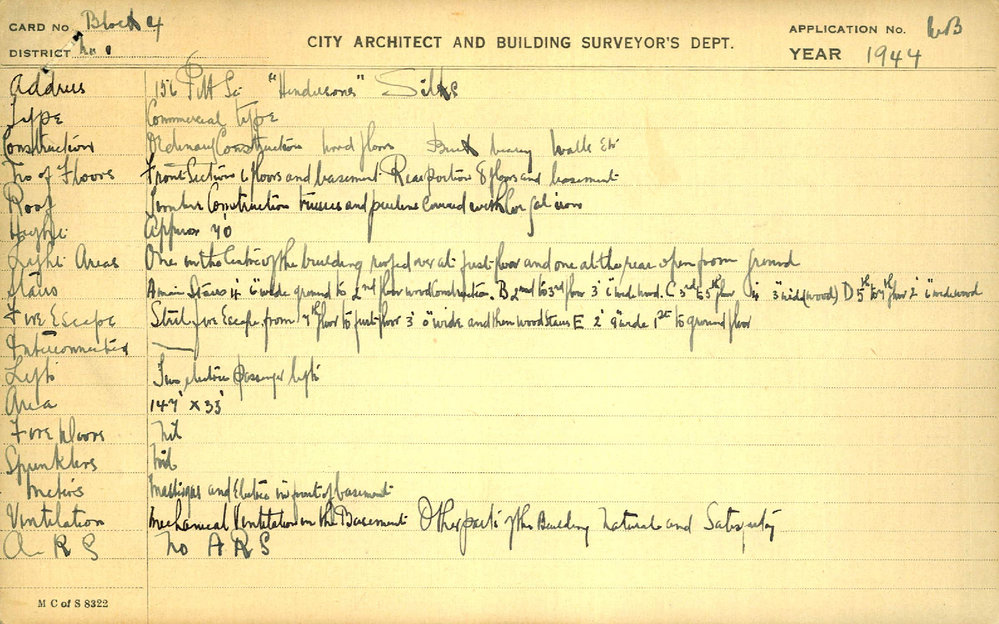 CARD No. Block 4
DISTRICT No 1
CITY ARCHITECT AND BUILDING SURVEYOR'S DEPT.
APPLICATION No.
YEAR 1944
Address 156 Pitt St "Hendersons" Silks
Type Commercial type
Construction Ordinary Construction wood floors Brick bearing Walls Etc
No of Floors Front Section 6 floors and basement Rear portion 8 floors and basement
Roof Construction trusses and purlins covered with Cor gal iron
Height Approx 90'
Light Areas One in the Centre of the building roofed over at first floor and one at the rear open from ground
Stairs A main Stairs 4' 6" wide ground to 2nd floor wood Construction, B 2nd to 3rd floor 3' 6" wide wood. C 3rd to 5th floor 3" wide (wood) D 5th to 7th floor 2' 6" wide wood
Fire Escape Steel fire Escape from 7th floor to first floor 3' 0" wide and then wood stairs E 2' 9" wide 1st to ground floor
Interconnected —
Lifts Two electric passenger lifts
Area 147' x 33'
Fire Doors Nil
Sprinklers Nil
Meters gas and Electric in front of basement
Ventilation Mechanical Ventilation in the Basement Other parts of the Building Natural and Satisfactory
A R S No A R S
M C of S 8322